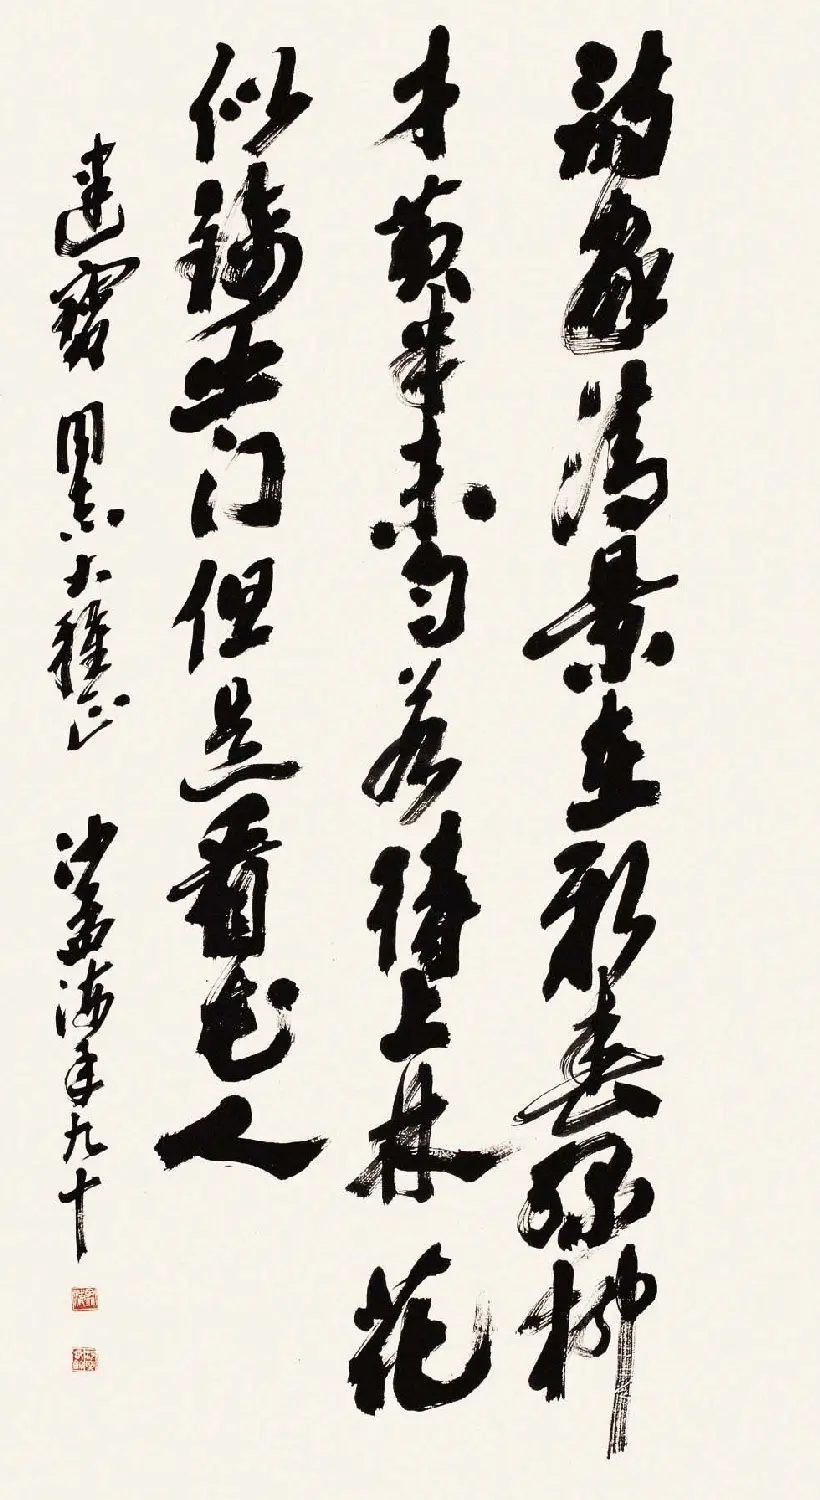 詩家清景在新春綠柳
才黃半未勻若待上林花
似錦出门但是看花人
建寶同志大雅正 沙孟海年九十